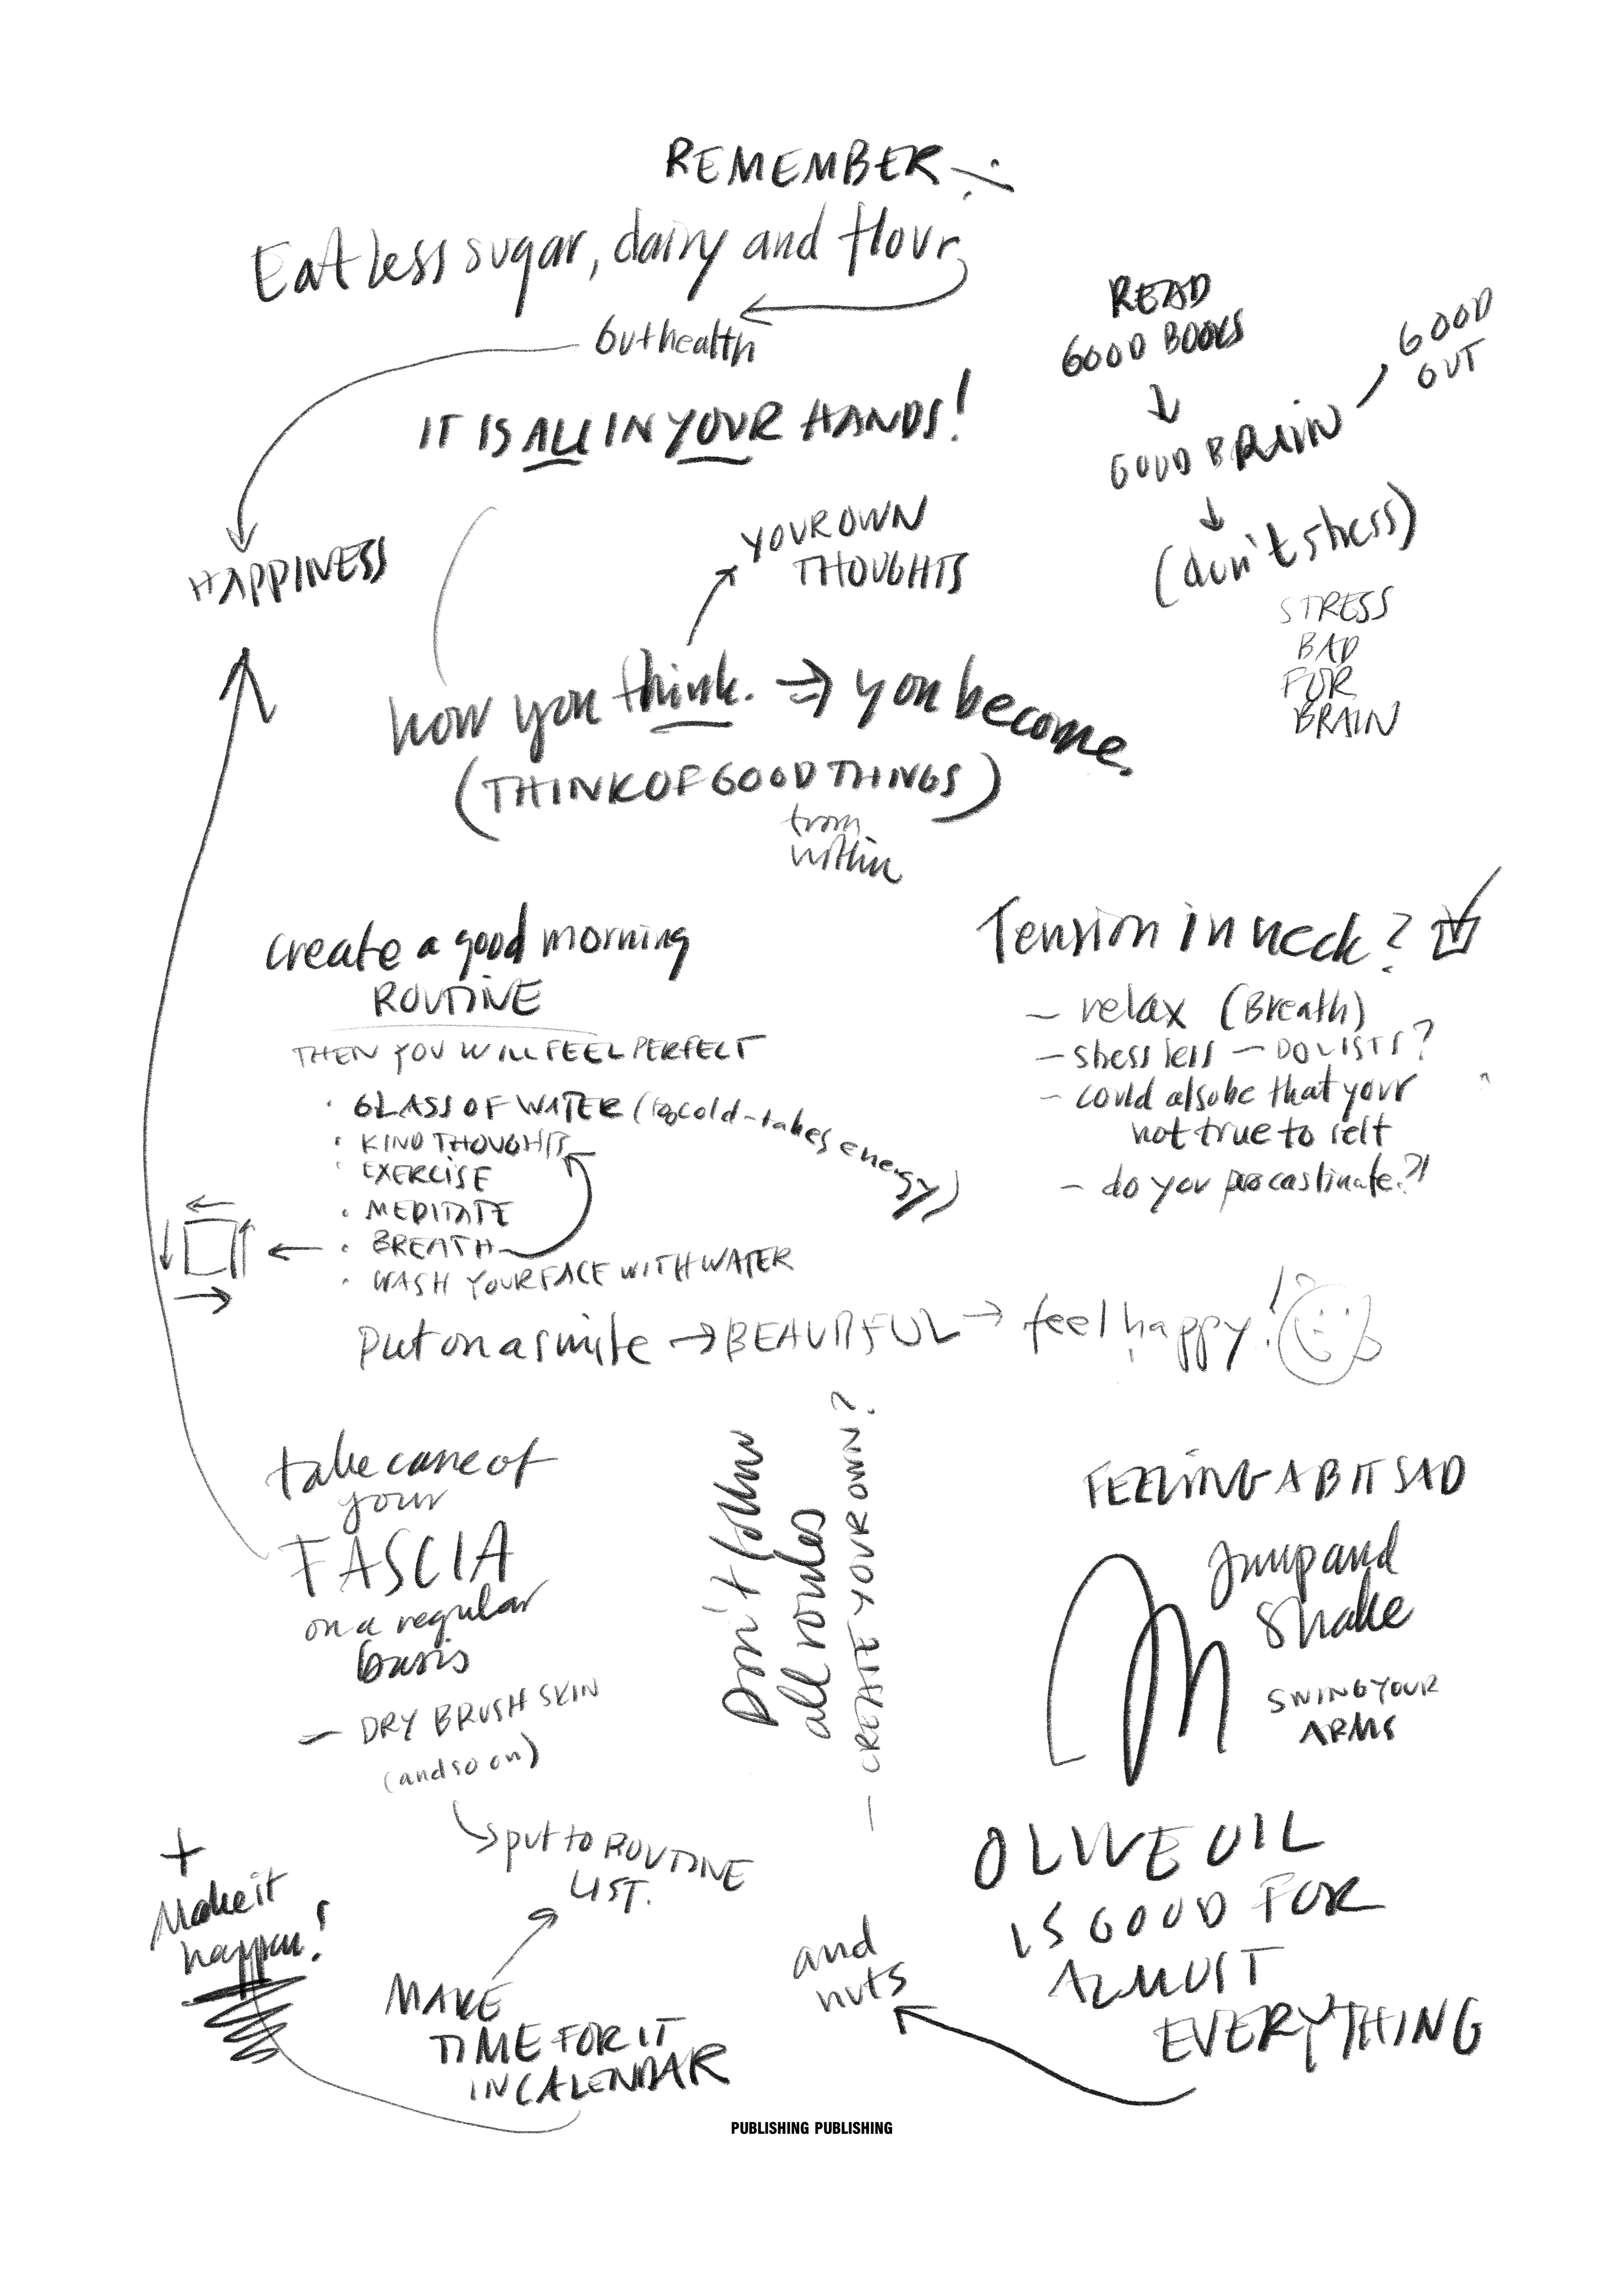 REMEMBER
Eat less sugar, dairy and flour
Guthealth
IT IS ALL IN YOUR HANDS!
READ
GOOD BOOKS
GOOD BRAIN
GOOD
GUT
(don't stress)
STRESS
BAD
FOR
BRAIN
HAPPINESS
YOUR OWN
THOUGHTS
how you think. you become.
(THINK OF GOOD THINGS)
from
within
create a good morning
ROUTINE
THEN YOU WILL FEEL PERFECT
• GLASS OF WATER (too cold-takes energy)
• KIND THOUGHTS
• EXERCISE
• MEDITATE
• BREATH
• WASH YOUR FACE WITH WATER
put on a smile → BEAUTIFUL → feel happy!
Tension in neck?
- relax (Breath)
- stress less - DO LISTS?
- could also be that your
not true to self
- do you procastinate?!
take care of
your
FASCIA
on a regular
basis
- DRY BRUSH SKIN
(and so on)
put to ROUTINE
LIST.
MAKE
TIME FOR IT
IN CALENDAR
+
Make it
happen!
Don't follow
all
- CREATE YOUR OWN?
FEELING A BIT SAD
Jump and
Shake
SWING YOUR
ARMS
OLIVE OIL
IS GOOD FOR
ALMOST
EVERYTHING
and
nuts
PUBLISHING PUBLISHING